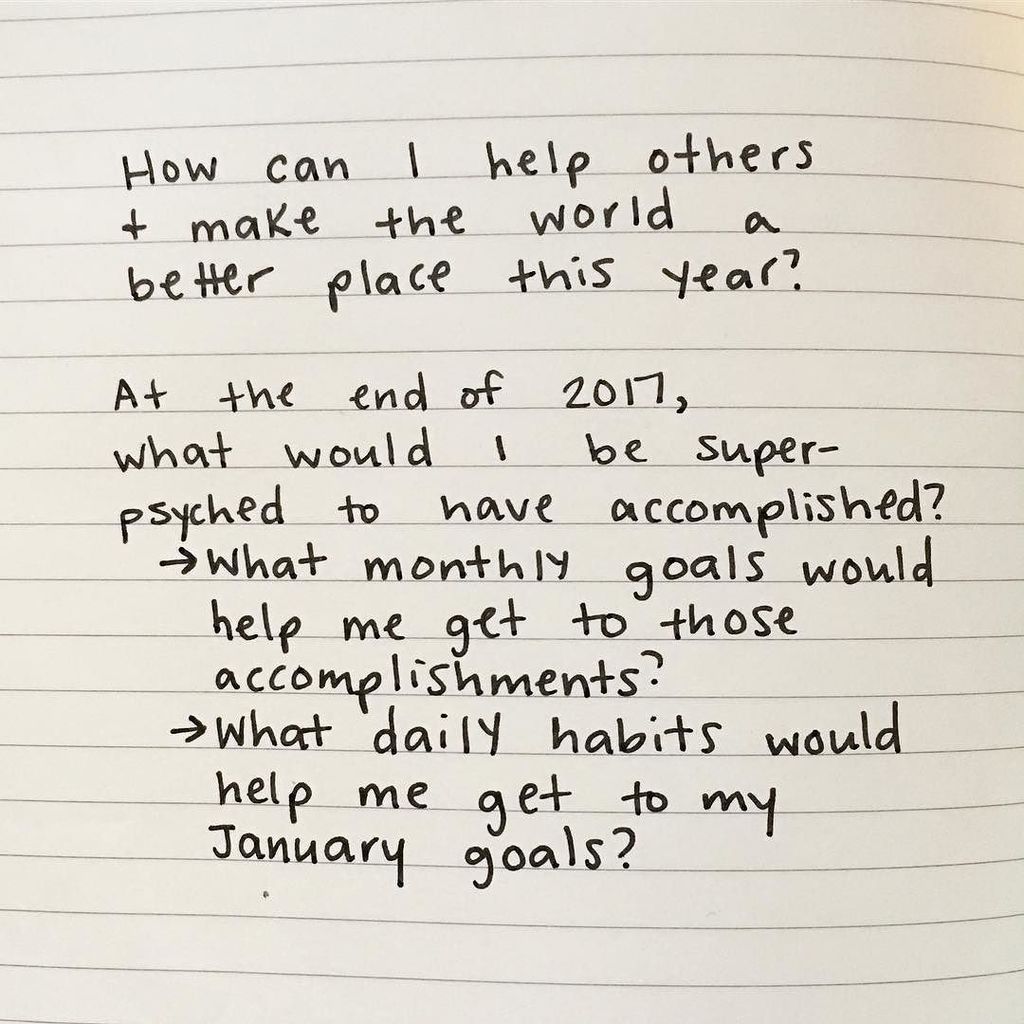 How can I help others
+ make the world a
better place this year?
At the end of 2017,
what would I be super-
psyched to have accomplished?
→What monthly goals would
help me get to those
accomplishments?
→What daily habits would
help me get to my
January goals?